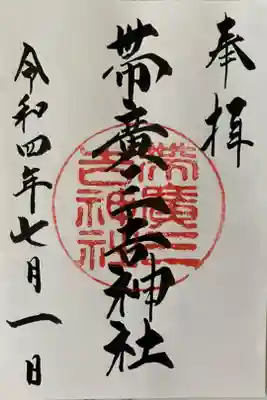 奉拝
帯廣三吉神社
帯廣三吉神社
令和四年七月一日